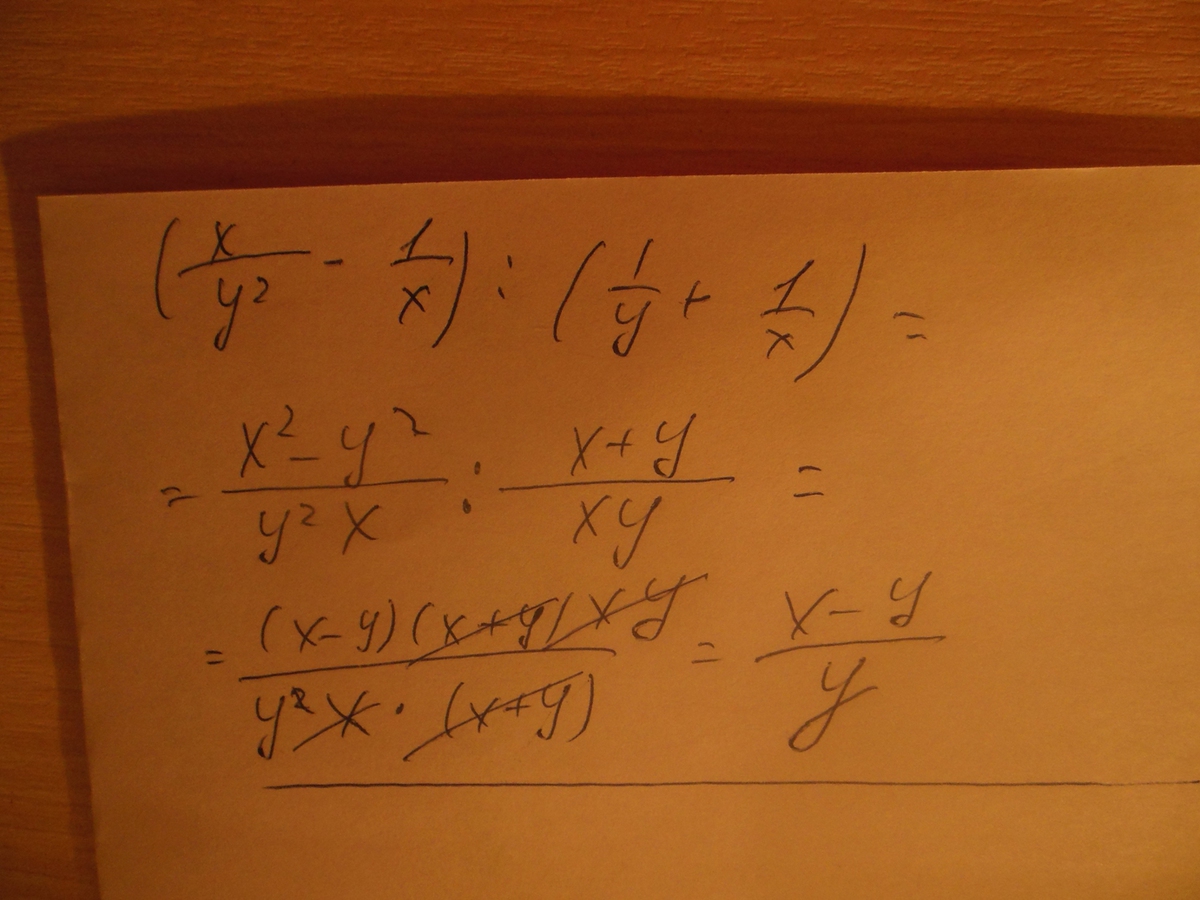 (x/y² - 1/x) : (1/y + 1/x) =
= (x² - y²)/(y² x) : (x + y)/(xy) =
= ((x - y)(x + y) xy)/(y² x · (x + y)) = (x - y)/y